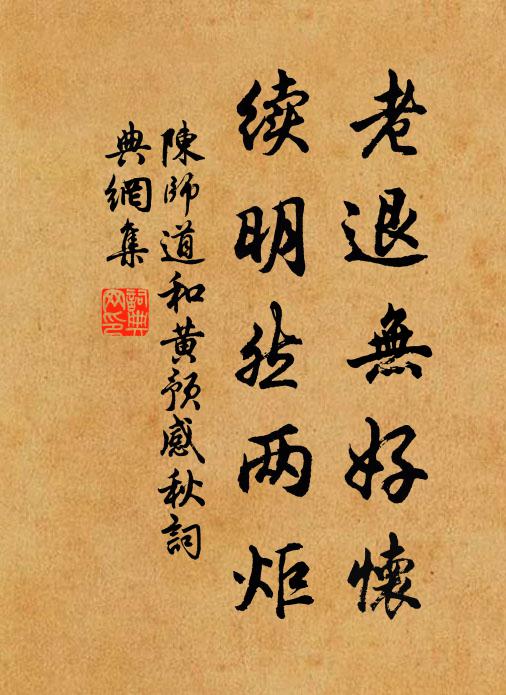 老退無好懷
续明然两炬
陳師道和黄預感秋詞
典網集
詞典網印